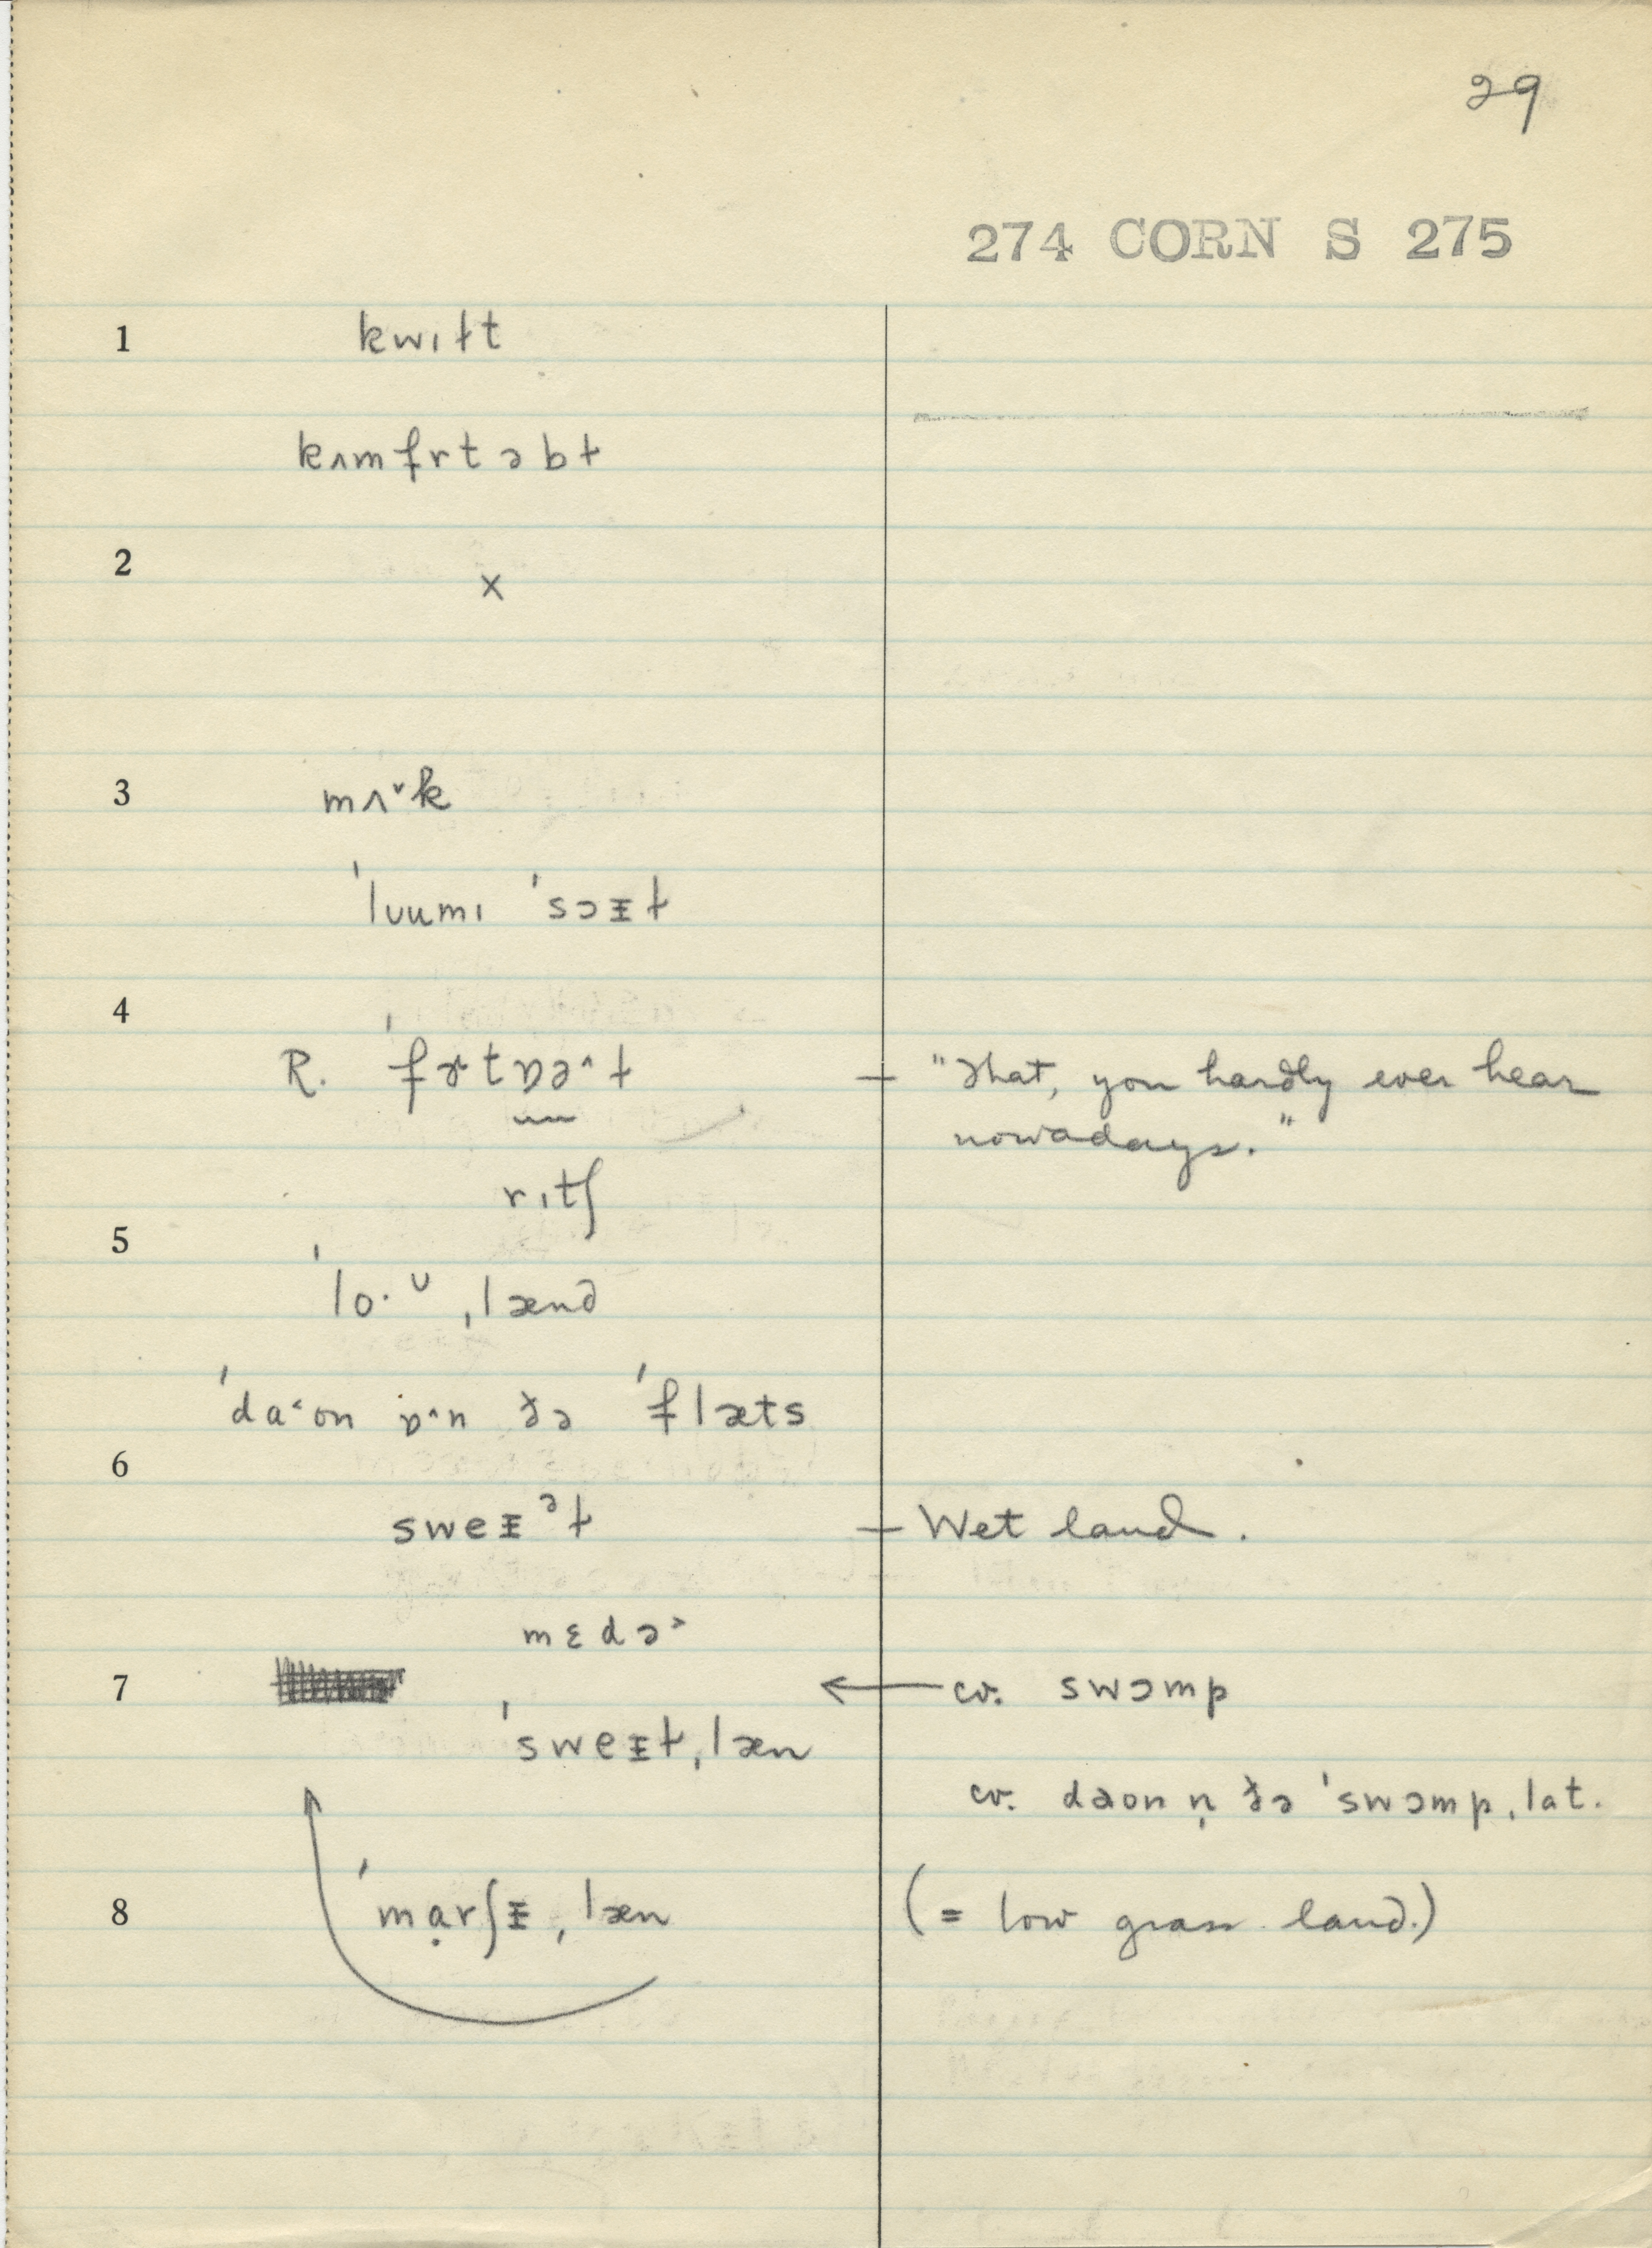 29
274 CORN S 275
1 kwɪɫt
kʌmfrtəbɫ
2 x
3 mʌ˅k
ˈlʊumɪ ˈsɔᵻɫ
4
R. ˈfɚtɒə^ɫ — "That, you hardly ever hear
nowadays."
rɪtʃ
5
ˈlo·ᶷˌlænd
ˈda˂on ɒ^n ðə ˈflæts
6
sweᵻᵊɫ — Wet land.
mɛdə˃
7 ← cv. swɔmp
ˈsweᵻɫˌlæn
cv. dəon n̩ ðə ˈswɔmpˌlat.
8 ˈmạrʃᵻˌlæn (= low grass land.)